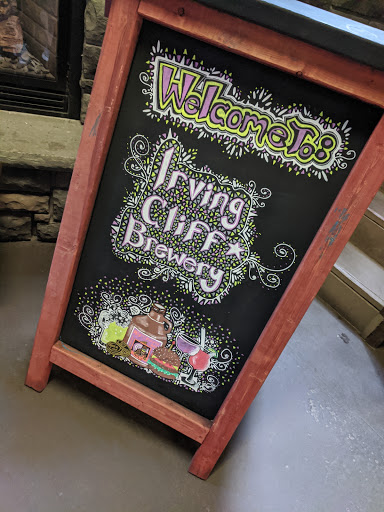 Welcome To:
Irving
Cliff
Brewery